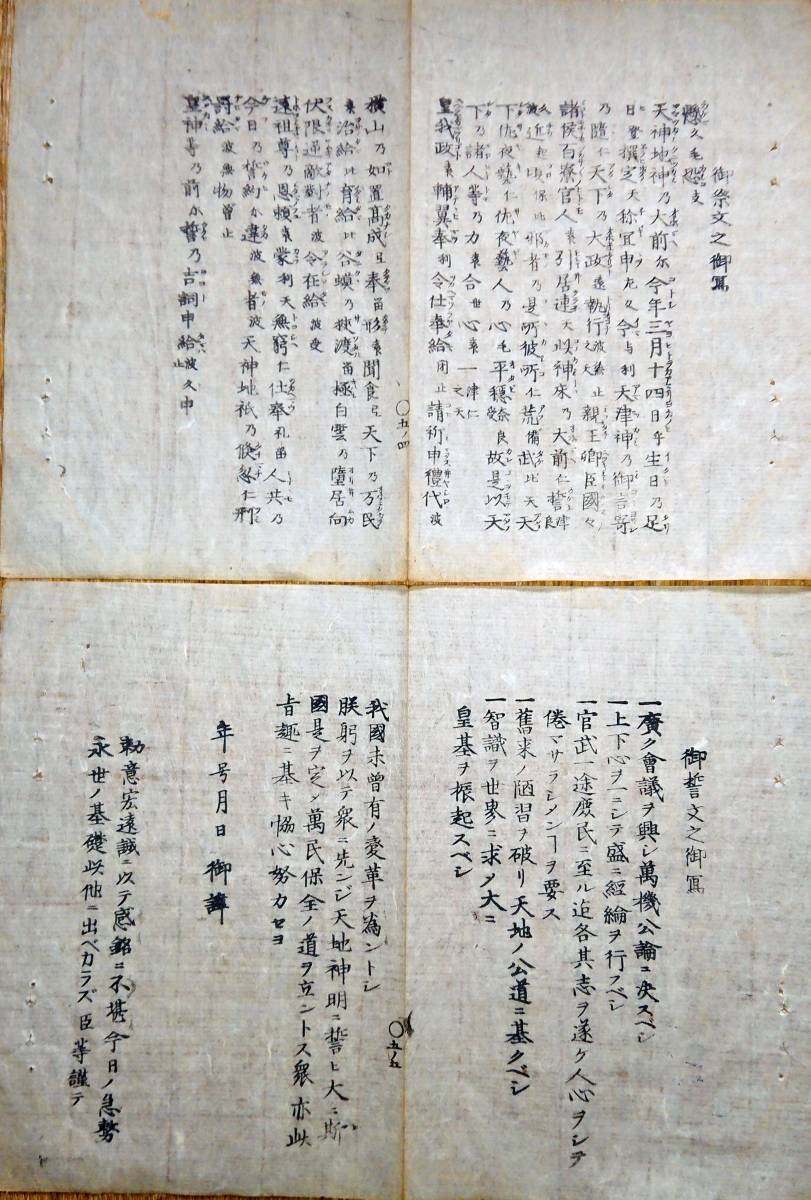 御祭文之御寫
懸久毛恐支
天神地神乃大前尓今年三月十四日乎生日乃足
日登撰定天祢宜申左久今与利天津神乃御言寄
乃隨仁天下乃大政遠執行波牟止之天親王卿臣國々
諸侯百寮官人乎引居連天此神床乃大前仁誓津良久
波近岐頃保比邪者乃是所彼所仁荒備武比天天
下佐夜藝仁佐夜藝人乃心毛平穩奈良受故是以天
下乃諸人等乃力乎合世心乎一津仁之天
皇我政乎輔翼奉利令仕奉給閇止請祈申禮代波
横山乃如置高成氐奉留形乎聞食氐天下乃万民
乎治給比育給比谷蟆乃狹渡留極白雲乃墮居向
伏限逆敵對者波令在給波受
遠祖尊乃恩頼乎蒙利天無窮仁仕奉礼留人共乃
今日乃誓約尓違波無者波天神地祇乃倏忽仁刑
罸給波無物曾止
皇神等乃前尓誓乃吉詞申給波久止申
〇五ノ四
御誓文之御寫
一廣ク會議ヲ興シ萬機公論ニ決スベシ
一上下心ヲ一ニシテ盛ニ經綸ヲ行フベシ
一官武一途庶民ニ至ル迠各其志ヲ遂ケ人心ヲシテ
倦マサラシメンヿヲ要ス
一舊来ノ陋習ヲ破リ天地ノ公道ニ基クベシ
一智識ヲ世界ニ求メ大ニ
皇基ヲ振起スベシ
〇五ノ五
我國未曾有ノ変革ヲ為ントシ
朕躬ヲ以テ衆ニ先ンジ天地神明ニ誓ヒ大ニ斯
國是ヲ定メ萬民保全ノ道ヲ立ントス衆亦此
旨趣ニ基キ恊心努力セヨ
年号月日 御諱
勅意宏遠誠ニ以テ感銘ニ不堪今日ノ急務
永世ノ基礎此他ニ出ベカラズ臣等謹テ